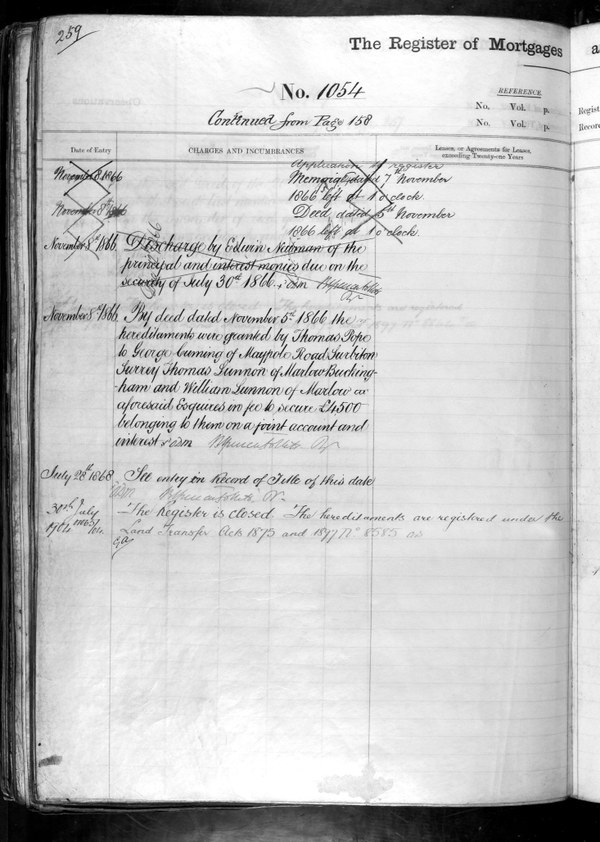 259
The Register of Mortgages a
No. 1054
REFERENCE.
No. Vol. p.
Continued from Page 158
No. Vol. p.
Regist
Record
Date of Entry
CHARGES AND INCUMBRANCES
Leases, or Agreements for Leases,
exceeding Twenty-one Years
Application to register
November 8 1866
Memorial dated 7th November
1866 left at 1 o'clock.
November 8th 1866
Deed dated 5th November
1866 left at 1 o'clock.
November 8th 1866
Discharge by Edwin Newman of the
principal and interest monies due on the
security of July 30th 1866
November 8th 1866
By deed dated November 5th 1866 the
hereditaments were granted by Thomas Pope
to George Cuming of Maypole Road Surbiton
Surrey Thomas Lunnon of Marlow Bucking-
ham and William Lunnon of Marlow
aforesaid Esquires in fee to secure £4500
belonging to them on a joint account and
interest
July 28th 1868
See entry in Record of Title of this date
30th July
1904
The Register is closed. The hereditaments are registered under the
Land Transfer Acts 1875 and 1897 No 8585